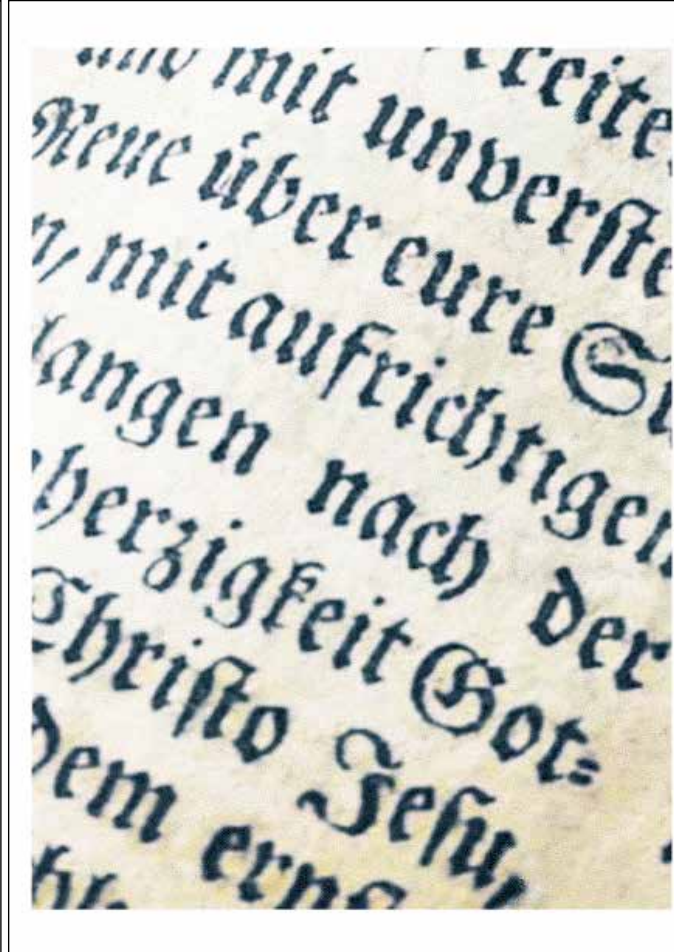 und mit unverste
Reue über eure Sü
n, mit aufrichtigen
langen nach der
herzigkeit Got⸗
Christo Jesu,
dem erns